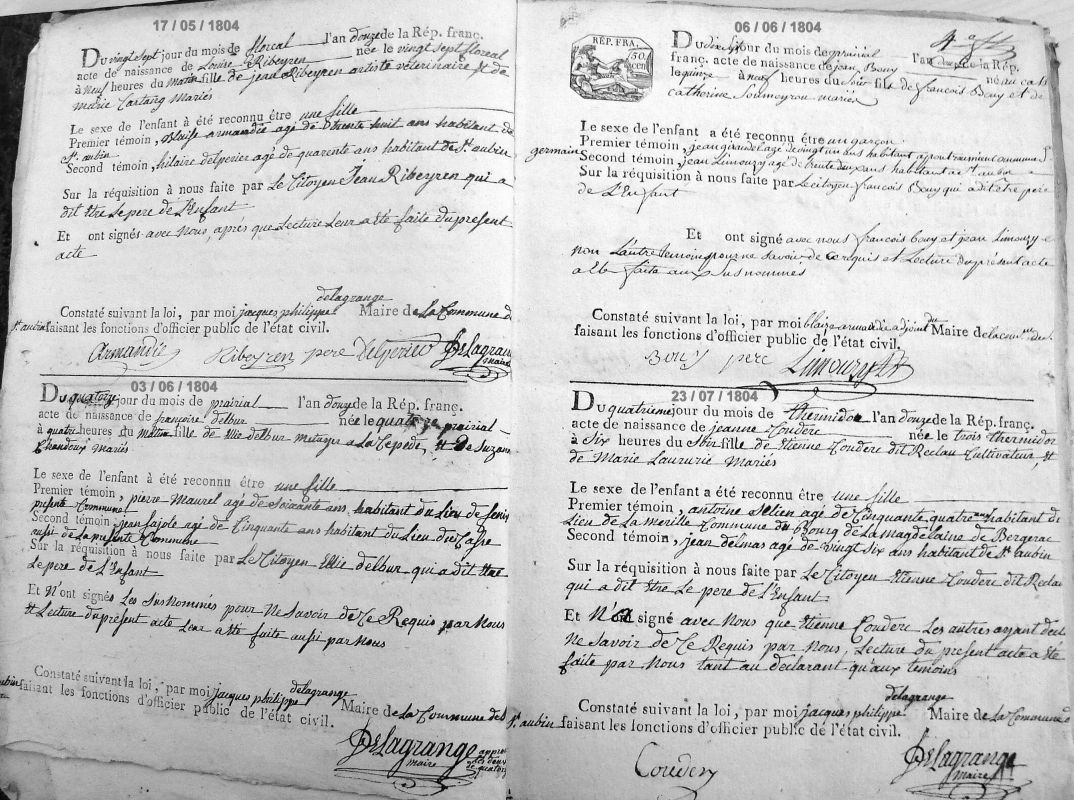 17 / 05 / 1804
Du vingt sept jour du mois de floreal l'an douze de la Rép. franç.
acte de naissance de Louise Ribeyren née le vingt sept floreal
à neuf heures du matin fille de jean Ribeyren artiste véterinaire et de
marie Cartang Mariés
Le sexe de l'enfant a été reconnu être une fille
Premier témoin, Blaise armandie agé de trente huit ans habitant de
St. aubin
Second témoin, hilaire delperier agé de quarente ans habitant de St. aubin
Sur la réquisition à nous faite par Le Citoyen Jean Ribeyren qui a
dit être Le pere de L'Enfant
Et ont signés avec Nous, aprés que Lecture Leur a été faite du present
acte
delagrange
Constaté suivant la loi, par moi jacques philippe Maire de La Commune de
St. aubin faisant les fonctions d'officier public de l'état civil.
Armandie Ribeyren pere Delperier Delagrange
maire
03 / 06 / 1804
Du quatorze jour du mois de prairial l'an douze de la Rép. franç.
acte de naissance de françoise delbur née le quatorze prairial
à quatre heures du matin fille de Elie delbur métayer a La Cepede, et de Suzane
Chondoux Mariés
Le sexe de l'enfant a été reconnu être une fille
Premier témoin, pierre Maurel agé de Soixante ans, habitant du Lieu de
présente Commune
Second témoin, jean fajole agé de Cinquante ans habitant du Lieu du Casse
aussi de La présente Commune
Sur la réquisition à nous faite par Le Citoyen Ellie delbur qui a dit être
Le pere de L'Enfant
Et N'ont signés Les Sus Nommés pour Ne Savoir de Ce Requis par Nous
et Lecture du présent acte Leur a été faite aussi par Nous
delagrange
Constaté suivant la loi, par moi jacques philippe Maire de La Commune de St
aubin faisant les fonctions d'officier public de l'état civil.
Delagrange
maire
06 / 06 / 1804
RÉP. FRA.
50
cen
Du dix sept jour du mois de prairial l'an douze de la Rép.
franç. acte de naissance de jean Bouy né au cass
le quinze à neuf heures du soir fils de françois Bouy et de
catherine Soumeyrou mariés
Le sexe de l'enfant a été reconnu être un garçon
Premier témoin, jean giraudel agé de vingt un ans habitant commune St
germain
Second témoin, jean Limouzy agé de trente deux ans habitant a St aubin
Sur la réquisition à nous faite par Le citoyen francois Bouy qui a dit être pere
de L'Enfant
Et ont signé avec nous francois bouy et jean Limouzy e
non L'autre temoin pour ne Savoir de ce requis et Lecture du présent acte
a été faite aux Susnommés
Constaté suivant la loi, par moi blaise armandie adjoint du Maire de la commune de St
faisant les fonctions d'officier public de l'état civil.
Bouy pere Limouzy
23 / 07 / 1804
Du quatrieme jour du mois de thermidor l'an douze de la Rép. franç.
acte de naissance de jeanne Couderc née le trois thermidor
à Six heures du Soir fille de Etienne Couderc dit Reclau Cultivateur, et
de Marie Laururie Mariés
Le sexe de l'enfant a été reconnu être une fille
Premier témoin, antoine Selien agé de Cinquante quatre ans habitant du
Lieu de La merille Commune du Bourg de La magdelaine de Bergerac
Second témoin, jean delmas agé de vingt Six ans habitant de St. aubin
Sur la réquisition à nous faite par Le Citoyen Etienne Couderc dit Reclau
qui a dit être Le pere de L'Enfant
Et N'a signé avec Nous que Etienne Couderc Les autres ayant declaré
ne Savoir de Ce Requis par Nous, Lecture du present acte a été
faite par Nous tant au declarant qu'aux temoins
delagrange
Constaté suivant la loi, par moi jacques philippe Maire de La Commune de
St. aubin faisant les fonctions d'officier public de l'état civil.
Couderc Delagrange
maire